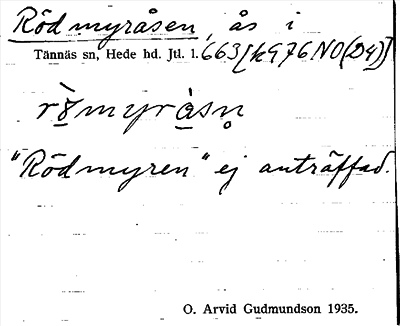 Rödmyråsen, ås i
Tännäs sn, Hede hd. Jtl. l. 663 [k976 NO(D4)]
rö̀myràsn̥
"Rödmyren" ej anträffad.
O. Arvid Gudmundson 1935.